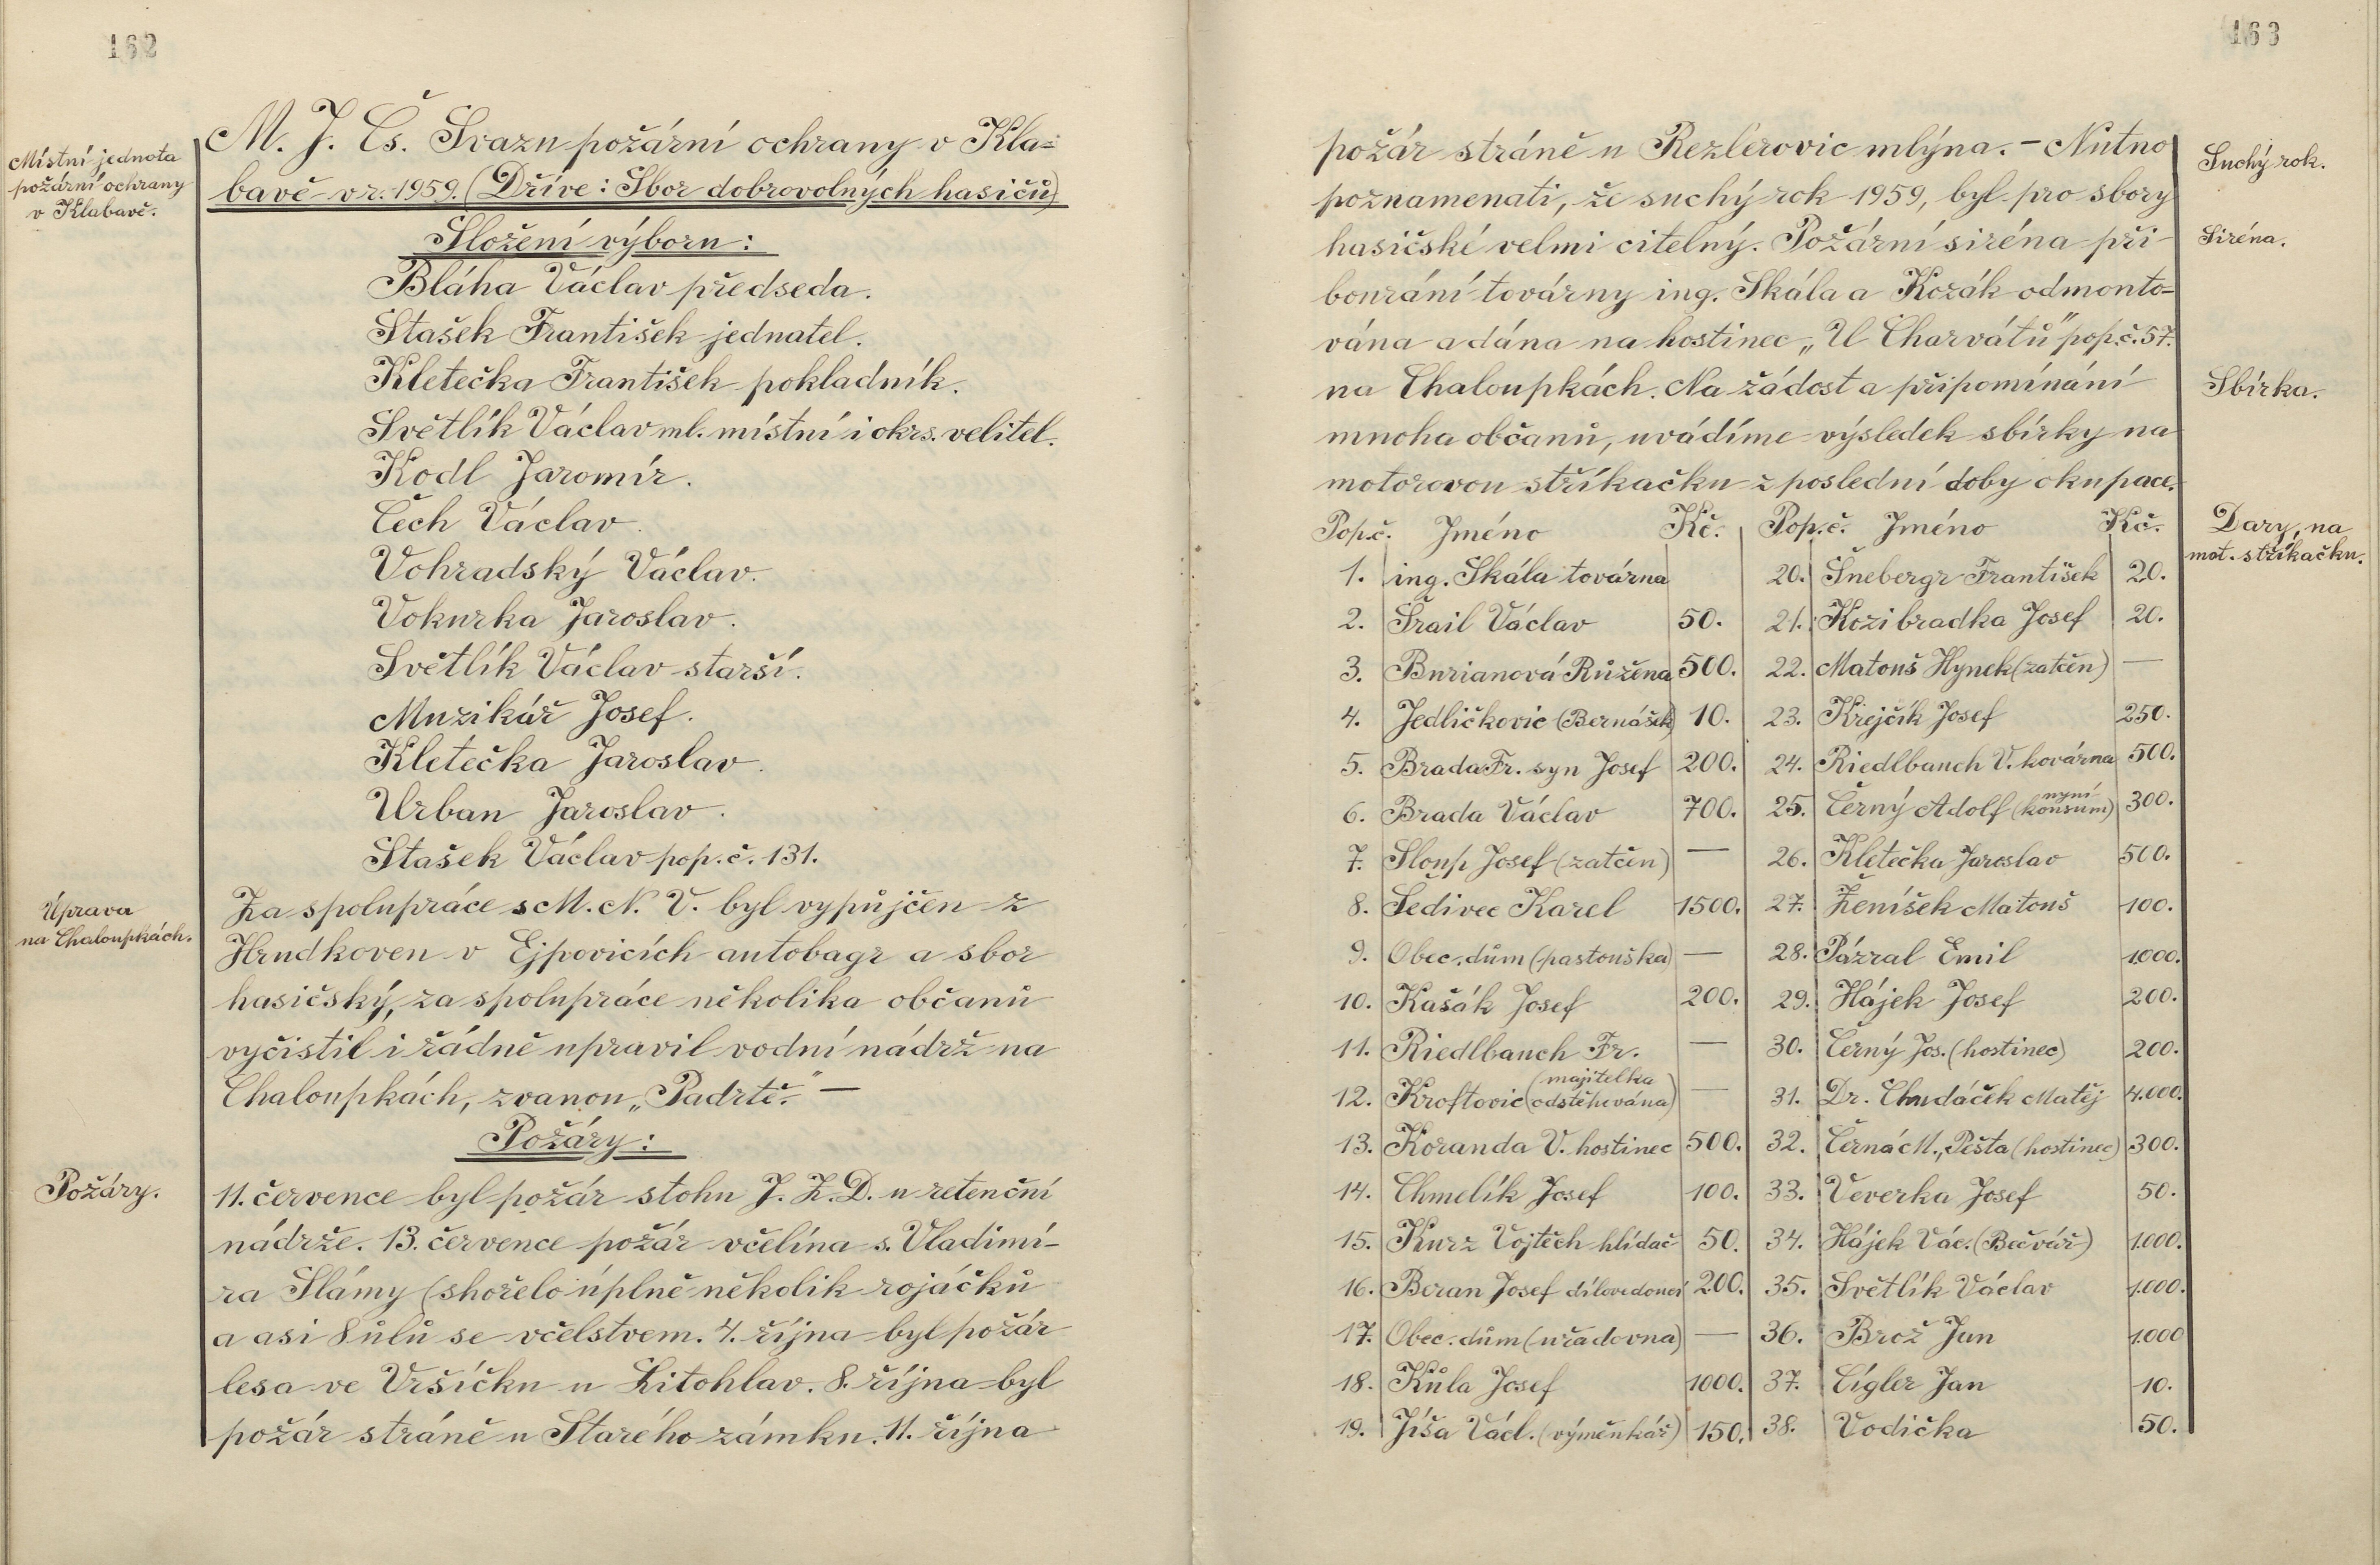 162
Místní jednota
požární ochrany
v Klabavě.
M. J. Čs. Svazu požární ochrany v Kla=
bavě v r. 1959. (Dříve: Sbor dobrovolných hasičů)
Složení výboru:
Bláha Václav předseda.
Stašek František jednatel.
Kletečka František pokladník.
Světlík Václav ml. místní i okrs. velitel.
Kodl Jaromír.
Čech Václav.
Vohradský Václav.
Vokurka Jaroslav.
Světlík Václav starší.
Muzikář Josef.
Kletečka Jaroslav.
Urban Jaroslav.
Stašek Václav pop. č. 131.
Úprava
na Chaloupkách.
Za spolupráce s M. N. V. byl vypůjčen z
Hrudkoven v Ejpovicích autobagr a sbor
hasičský, za spolupráce několika občanů
vyčistil i řádně upravil vodní nádrž na
Chaloupkách, zvanou „Padrtě.“ —
Požáry:
Požáry.
11. července byl požár stohu J. Z. D. u retenční
nádrže. 13. července požár včelína s. Vladimí-
ra Slámy (shořelo úplně několik rojáčků
a asi 8 úlů se včelstvem. 4. října byl požár
lesa ve Vršíčku u Litohlav. 8. října byl
požár stráně u Starého zámku. 11. října
163
požár stráně u Rezlerovic mlýna. — Nutno
poznamenati, že suchý rok 1959, byl pro sbory
hasičské velmi citelný. Požární siréna při
bourání továrny ing. Skála a Kozák odmonto=
vána a dána na hostinec „U Charvátů“ pop. č. 57.
na Chaloupkách. Na žádost a připomínání
mnoha občanů, uvádíme výsledek sbírky na
motorovou stříkačku z poslední doby okupace.
Suchý rok.
Siréna.
Sbírka.
Dary, na
mot. stříkačku.
Pop.č. Jméno Kč. Pop.č. Jméno Kč.
1. ing. Skála továrna 20. Šnebergr František 20.
2. Šrail Václav 50. 21. Kozibradka Josef 20.
3. Burianová Růžena 500. 22. Matouš Hynek (zatčen) —
4. Jedličkovic (Bernášek) 10. 23. Krejčík Josef 250.
5. Brada Fr. syn Josef 200. 24. Riedlbauch V. kovárna 500.
6. Brada Václav 700. 25. Černý Adolf (nyní konsum) 300.
7. Sloup Josef (zatčen) — 26. Kletečka Jaroslav 500.
8. Šedivec Karel 1500. 27. Ženíšek Matouš 100.
9. Obec. dům (pastouška) — 28. Pázral Emil 1.000.
10. Kašák Josef 200. 29. Hájek Josef 200.
11. Riedlbauch Fr. — 30. Černý Jos. (hostinec) 200.
12. Kroftovic (majitelka odstěhována) — 31. Dr. Chudáček Matěj 4.000.
13. Koranda V. hostinec 500. 32. Černá M., Pešta (hostinec) 300.
14. Chmelík Josef 100. 33. Veverka Josef 50.
15. Kurz Vojtěch hlídač 50. 34. Hájek Vác. (Bečvář) 1.000.
16. Beran Josef dílovedoucí 200. 35. Světlík Václav 1.000.
17. Obec. dům (uřadovna) — 36. Brož Jan 1.000
18. Kůla Josef 1000. 37. Cígler Jan 10.
19. Jíša Václ. (výměnkář) 150. 38. Vodička 50.